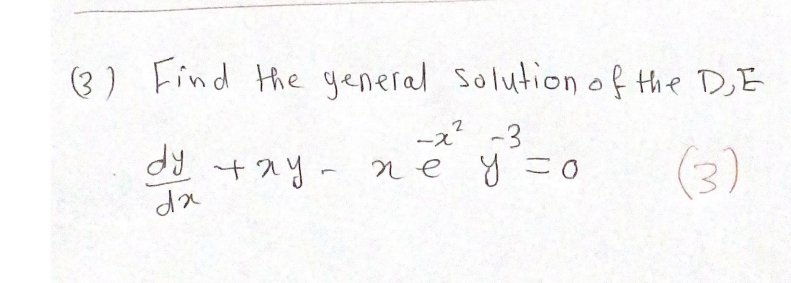 (3) Find the general solution of the D,E
dy/dx + xy - x e^{-x^2} y^{-3} = 0 (3)